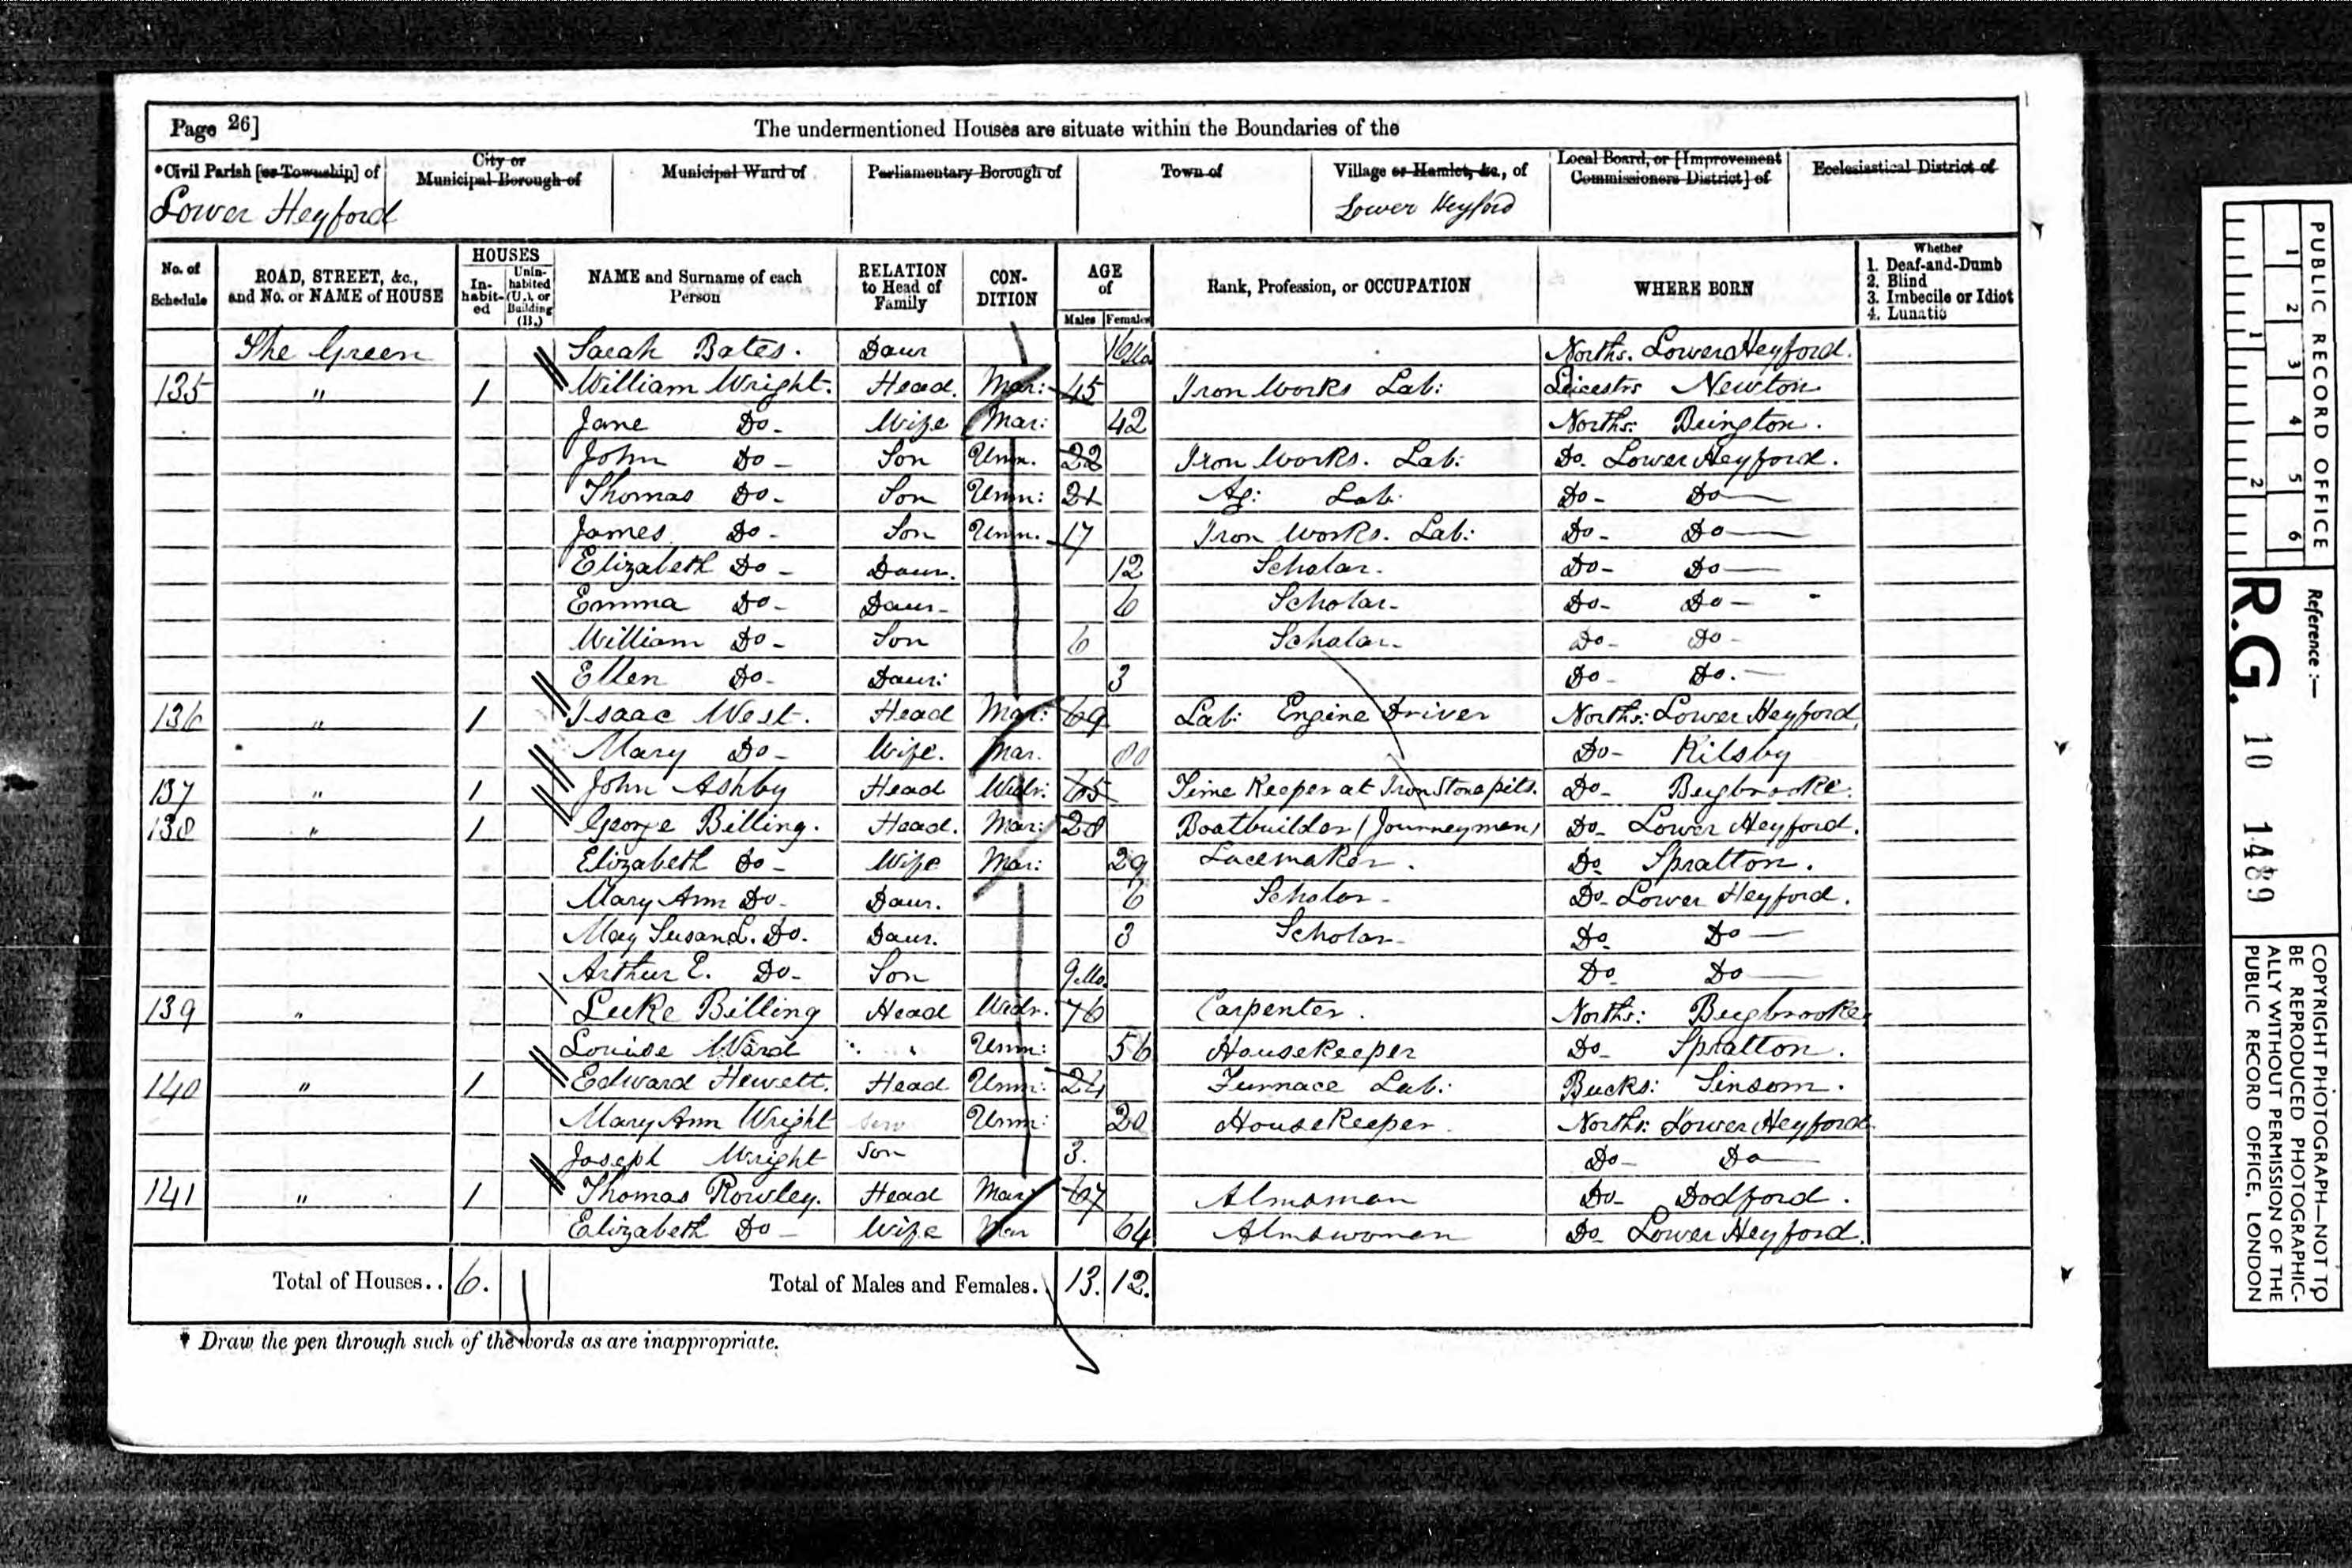 Page 26]
The undermentioned Houses are situate within the Boundaries of the
*Civil Parish [or Township] of
City or Municipal Borough of
Municipal Ward of
Parliamentary Borough of
Town of
Village or Hamlet, &c., of
Local Board, or [Improvement Commissioners District] of
Ecclesiastical District of
Lower Heyford
Lower Heyford
No. of Schedule
ROAD, STREET, &c., and No. or NAME of HOUSE
HOUSES
In-habit-ed
Unin-habited (U.), or Building (B.)
NAME and Surname of each Person
RELATION to Head of Family
CON-DITION
AGE of
Males Females
Rank, Profession, or OCCUPATION
WHERE BORN
Whether
1. Deaf-and-Dumb
2. Blind
3. Imbecile or Idiot
4. Lunatic
The Green Sarah Bates. Daur Norths. Lower Heyford.
135 " 1 William Wright. Head. Mar: 45 Iron Works Lab: Leicestrs Newton
Jane Do- Wife Mar: 42 Norths: Brington.
John Do- Son Unm. 22 Iron Works. Lab: Do. Lower Heyford.
Thomas Do- Son Unm: 21 Ag: Lab: Do- Do
James Do- Son Unm. 17 Iron Works. Lab: Do- Do
Elizabeth Do- Daur. 12 Scholar. Do- Do
Emma Do- Daur- 6 Scholar- Do- Do-
William Do- Son 6 Scholar- Do- Do-
Ellen Do- Daur: 3 Do- Do.-
136 " 1 Isaac West. Head Mar: 69 Lab: Engine Driver Norths: Lower Heyford
Mary Do- Wife. Mar. Do- Kilsby
137 " 1 John Ashby Head Widr: 65 Time Keeper at Iron Stone pits. Do- Bugbrooke.
138 " 1 George Billing. Head. Mar: 28 Boatbuilder (Journeyman) Do- Lower Heyford.
Elizabeth Do- Wife Mar: 29 Lacemaker. Do- Spratton.
Mary Ann Do- Daur. 6 Scholar- Do- Lower Heyford.
May Susan L. Do. Daur. 3 Scholar- Do Do
Arthur E. Do- Son 9 Mo. Do Do
139 " Luke Billing Head Widr. 76 Carpenter. Norths: Bugbrooke
Louise Ward " " Unm: 56 Housekeeper Do- Spratton.
140 " 1 Edward Hewett. Head Unm: 24 Furnace Lab: Bucks:
Mary Ann Wright Unm: 20 Housekeeper Norths: Lower Heyford
Joseph Wright Son 3. Do- Do
141 " 1 Thomas Rowley. Head Mar 67 Almsman Do- Dodford.
Elizabeth Do- Wife Mar 64 Almswoman Do- Lower Heyford.
Total of Houses.. 6.
Total of Males and Females.. 13. 12.
* Draw the pen through such of the words as are inappropriate.
PUBLIC RECORD OFFICE
1 2 3 4 5 6
1 2
Reference:-
R.G. 10 1489
COPYRIGHT PHOTOGRAPH—NOT TO
BE REPRODUCED PHOTOGRAPHIC-
ALLY WITHOUT PERMISSION OF THE
PUBLIC RECORD OFFICE, LONDON